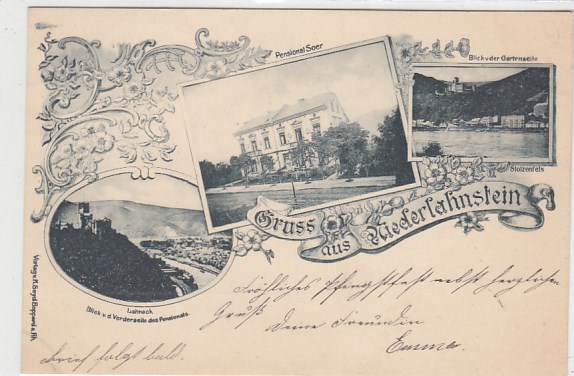 Pensionat Soer
Blick v. der Gartenseite
Stolzenfels
Gruss
aus Niederlahnstein
Lahneck
Blick v. d. Vorderseite des Pensionats.
Fröhliches Pfingstfest nebst herzlichen
Gruß Deine Freundin
Emma.
Brief folgt bald.